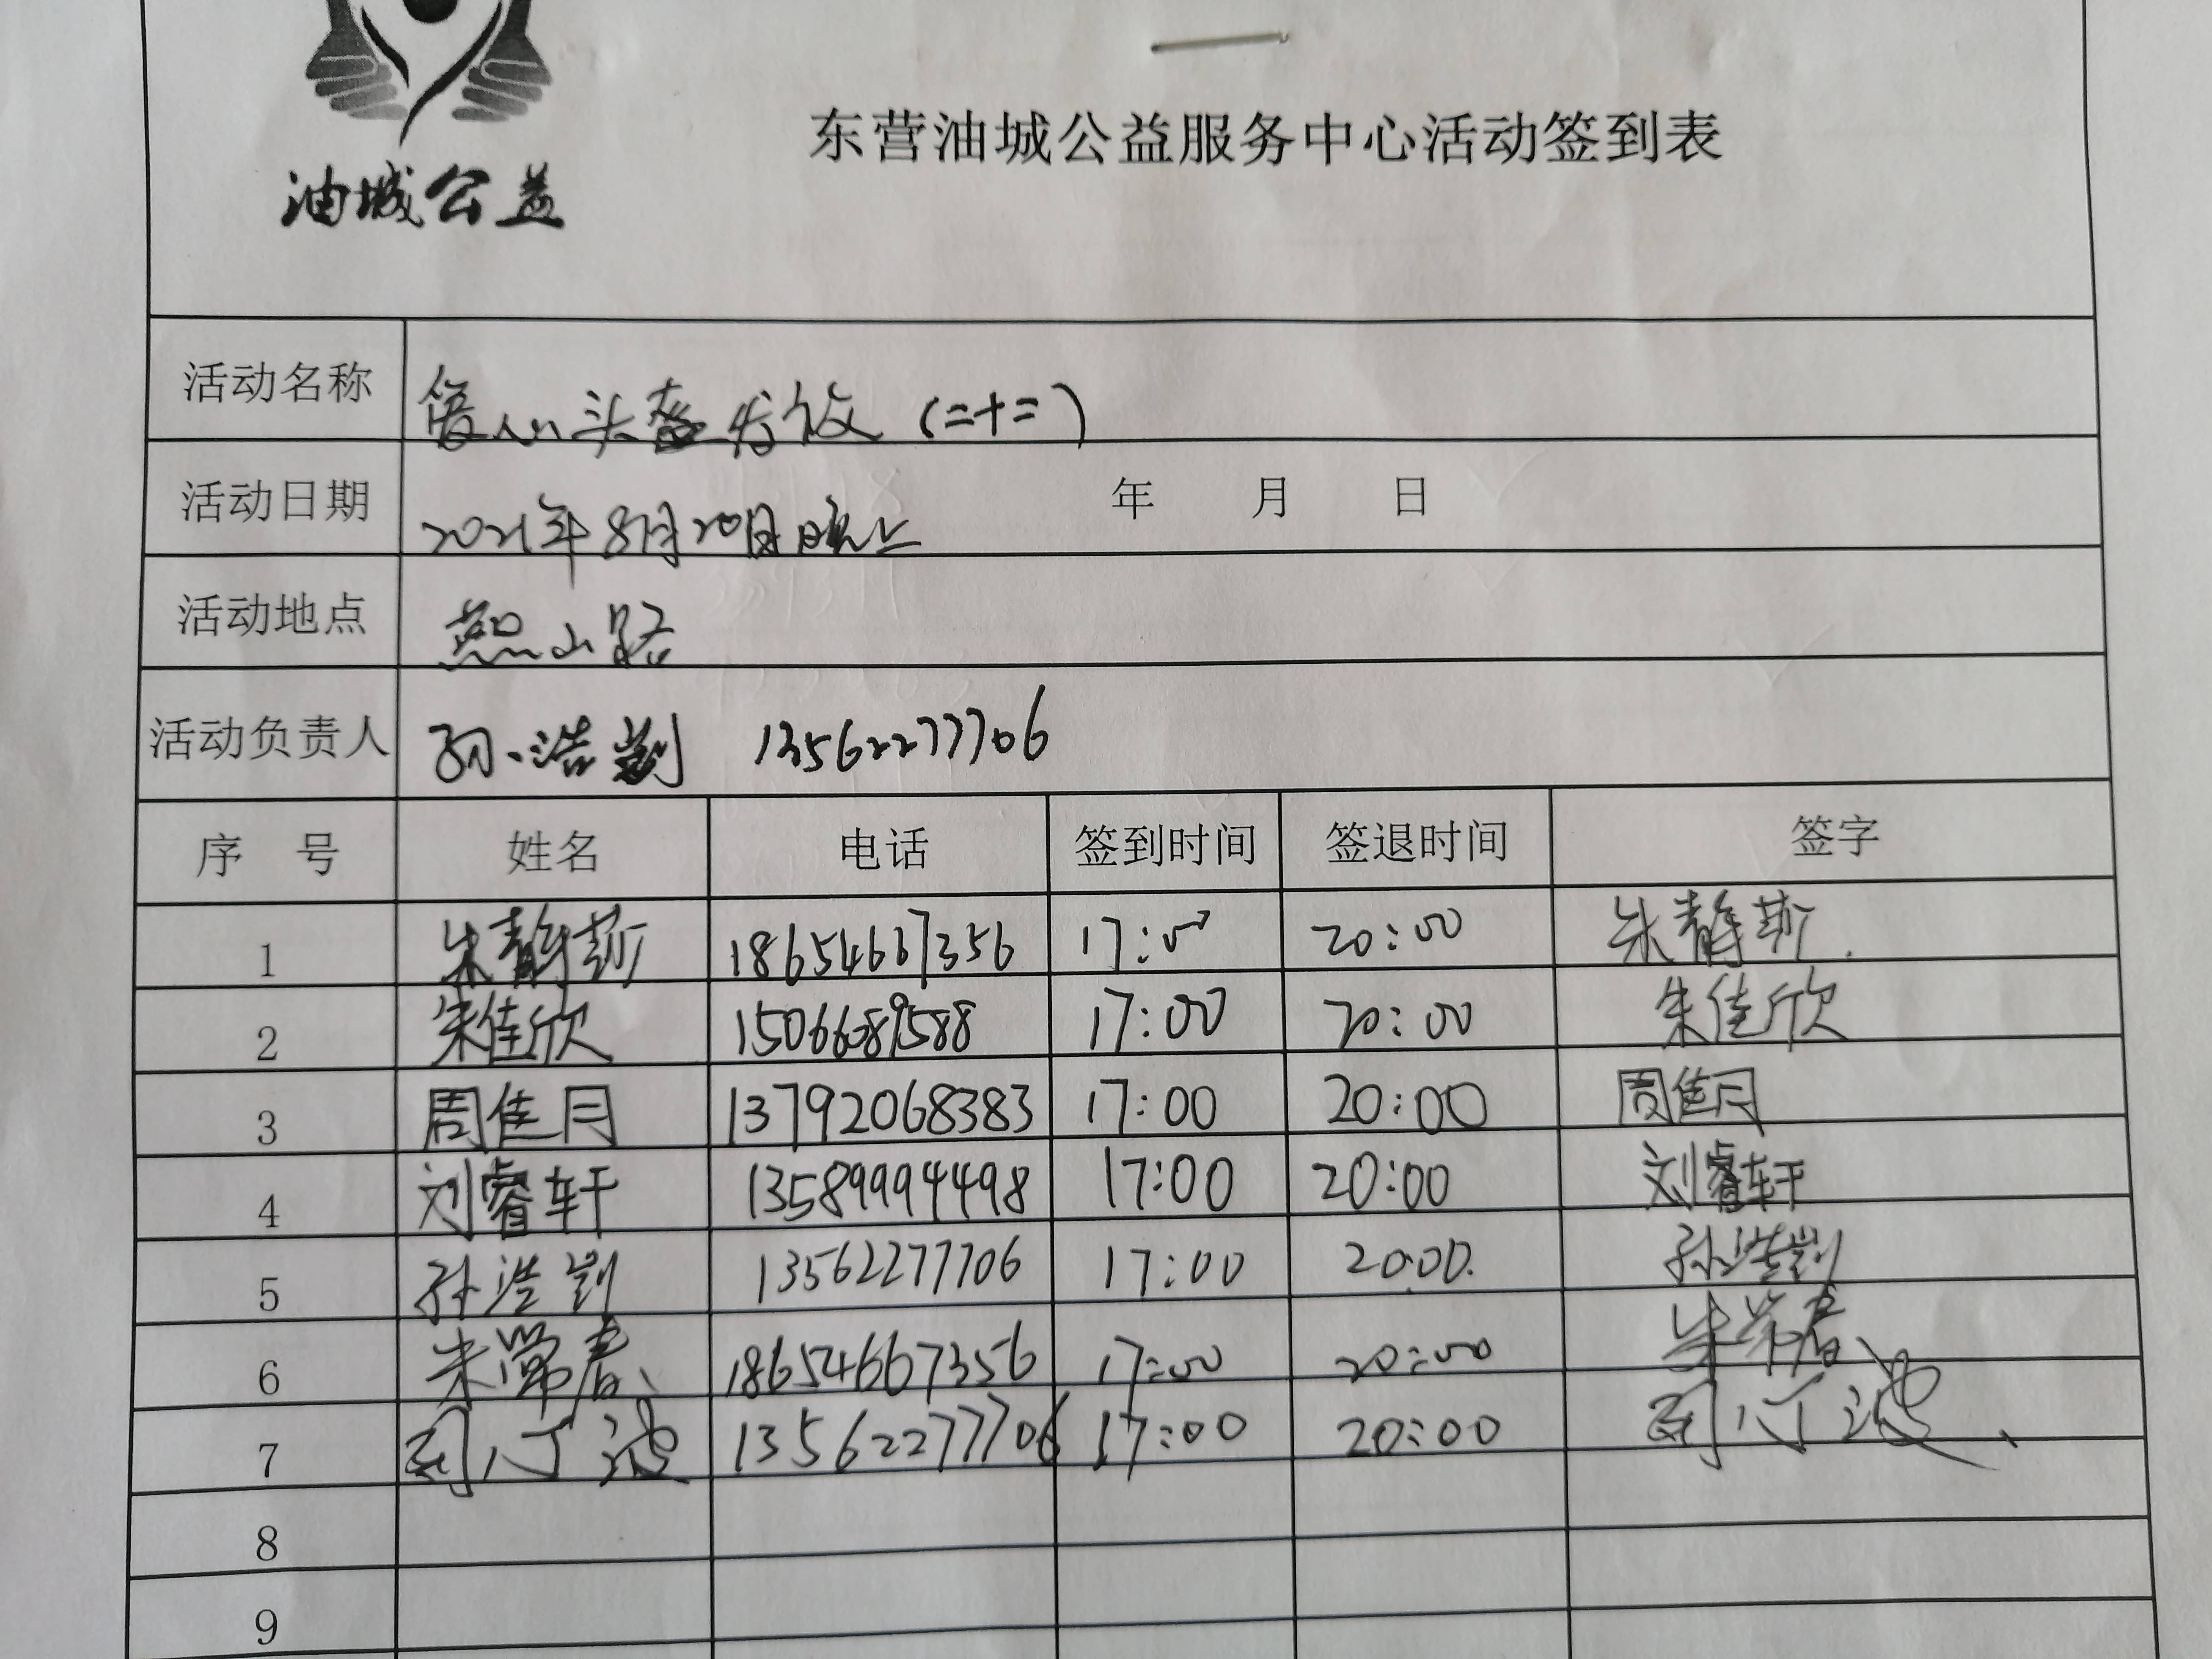 油城公益
东营油城公益服务中心活动签到表
活动名称 爱心头盔发放（二十二）
活动日期 2021年8月20日晚上 年 月 日
活动地点 燕山路
活动负责人 孙浩 13562277706
序 号 姓名 电话 签到时间 签退时间 签字
1 朱静茹 18654667356 17:00 20:00 朱静茹
2 朱佳欣 15066089588 17:00 20:00 朱佳欣
3 周佳月 13792068383 17:00 20:00 周佳月
4 刘睿轩 13589994498 17:00 20:00 刘睿轩
5 孙浩 13562277706 17:00 20:00 孙浩
6 朱常春 18654667356 17:00 20:00 朱常春
7 13562277706 17:00 20:00
8
9